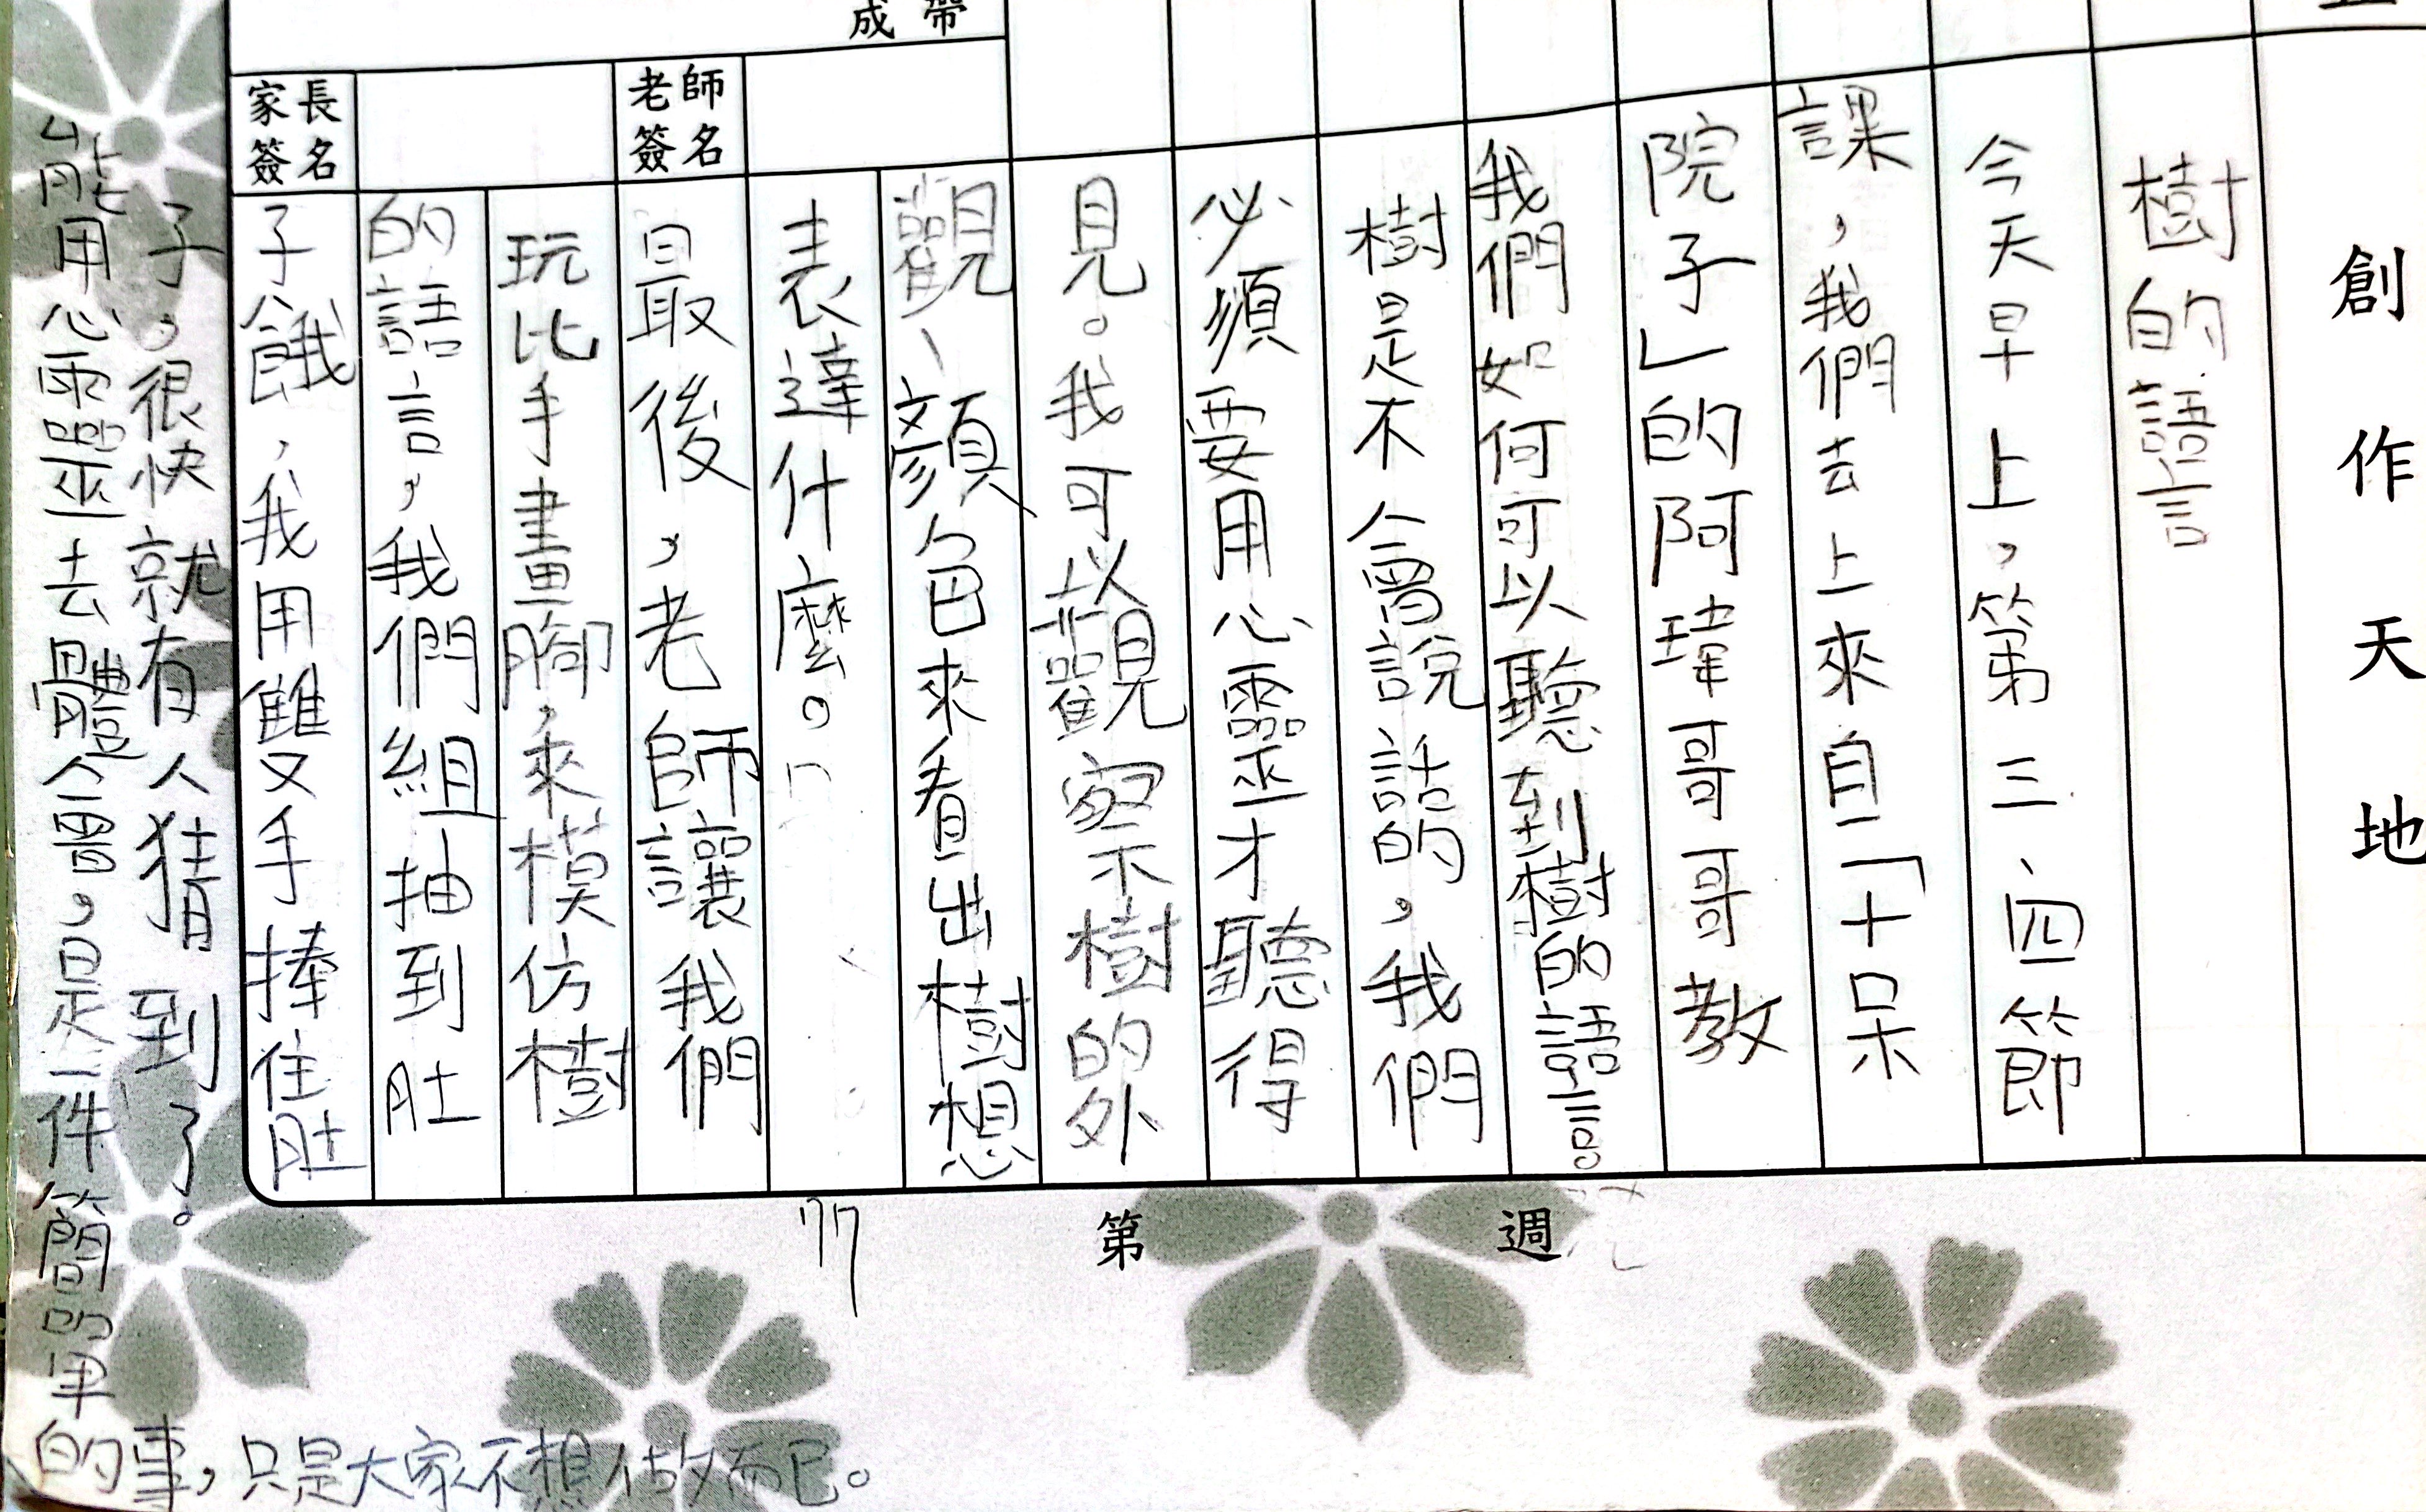 創作天地
樹的語言
今天早上，第三、四節
課，我們去上來自「十呆
院子」的阿瑋哥哥教
我們如何可以聽到樹的語言。
樹是不會說話的，我們
必須要用心靈才聽得
見。我可以觀察不樹的外
觀、顏色來看出樹想
表達什麼。
最後，老師讓我們
玩比手畫腳，來模仿樹
的語言，我們組抽到肚
子餓，我用雙手捧住肚
子。很快就有人猜到了。
能用心靈去體會，是一件簡單
的事，只是大家不想做而已。
成帶
老師
簽名
家長
簽名
第 週